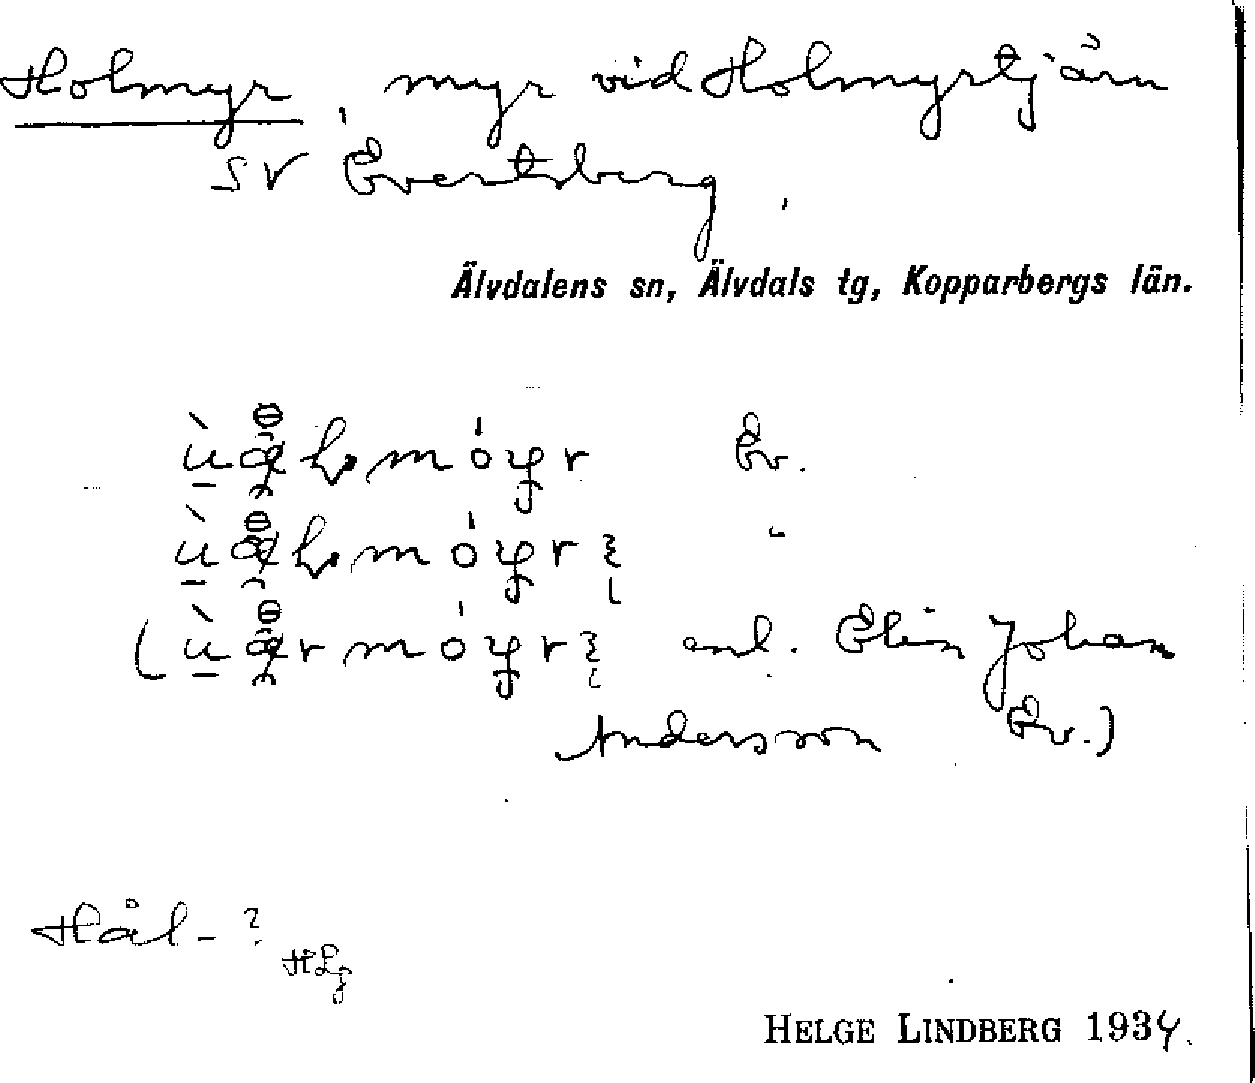 Holmyr, myr vid Holmyrtjärn
SV Evertsberg.
Älvdalens sn, Älvdals tg, Kopparbergs län.
Ev.
"
( enl. Elin Johan
Andersson Ev.)
Hål-?
HLg
HELGE LINDBERG 1934.